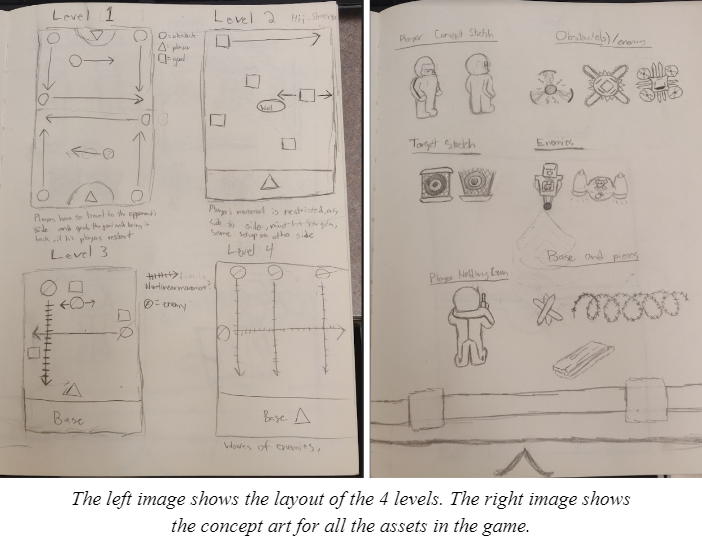 Level 1
Level 2
= player
= goal
Wall
Players have to travel to the opponent's
side and grab the goal and bring it
back, if hit players restart
Player's movement is restricted, only
side to side, must hit targets,
same setup on other side
Level 3
Level 4
Nonlinear movement?
= enemy
Base
Base
Waves of enemies,
Player Concept Sketch
Obstacle(s)/enemy
Target Sketch
Enemies
Base and pieces
Player Holding Gun
The left image shows the layout of the 4 levels. The right image shows
the concept art for all the assets in the game.